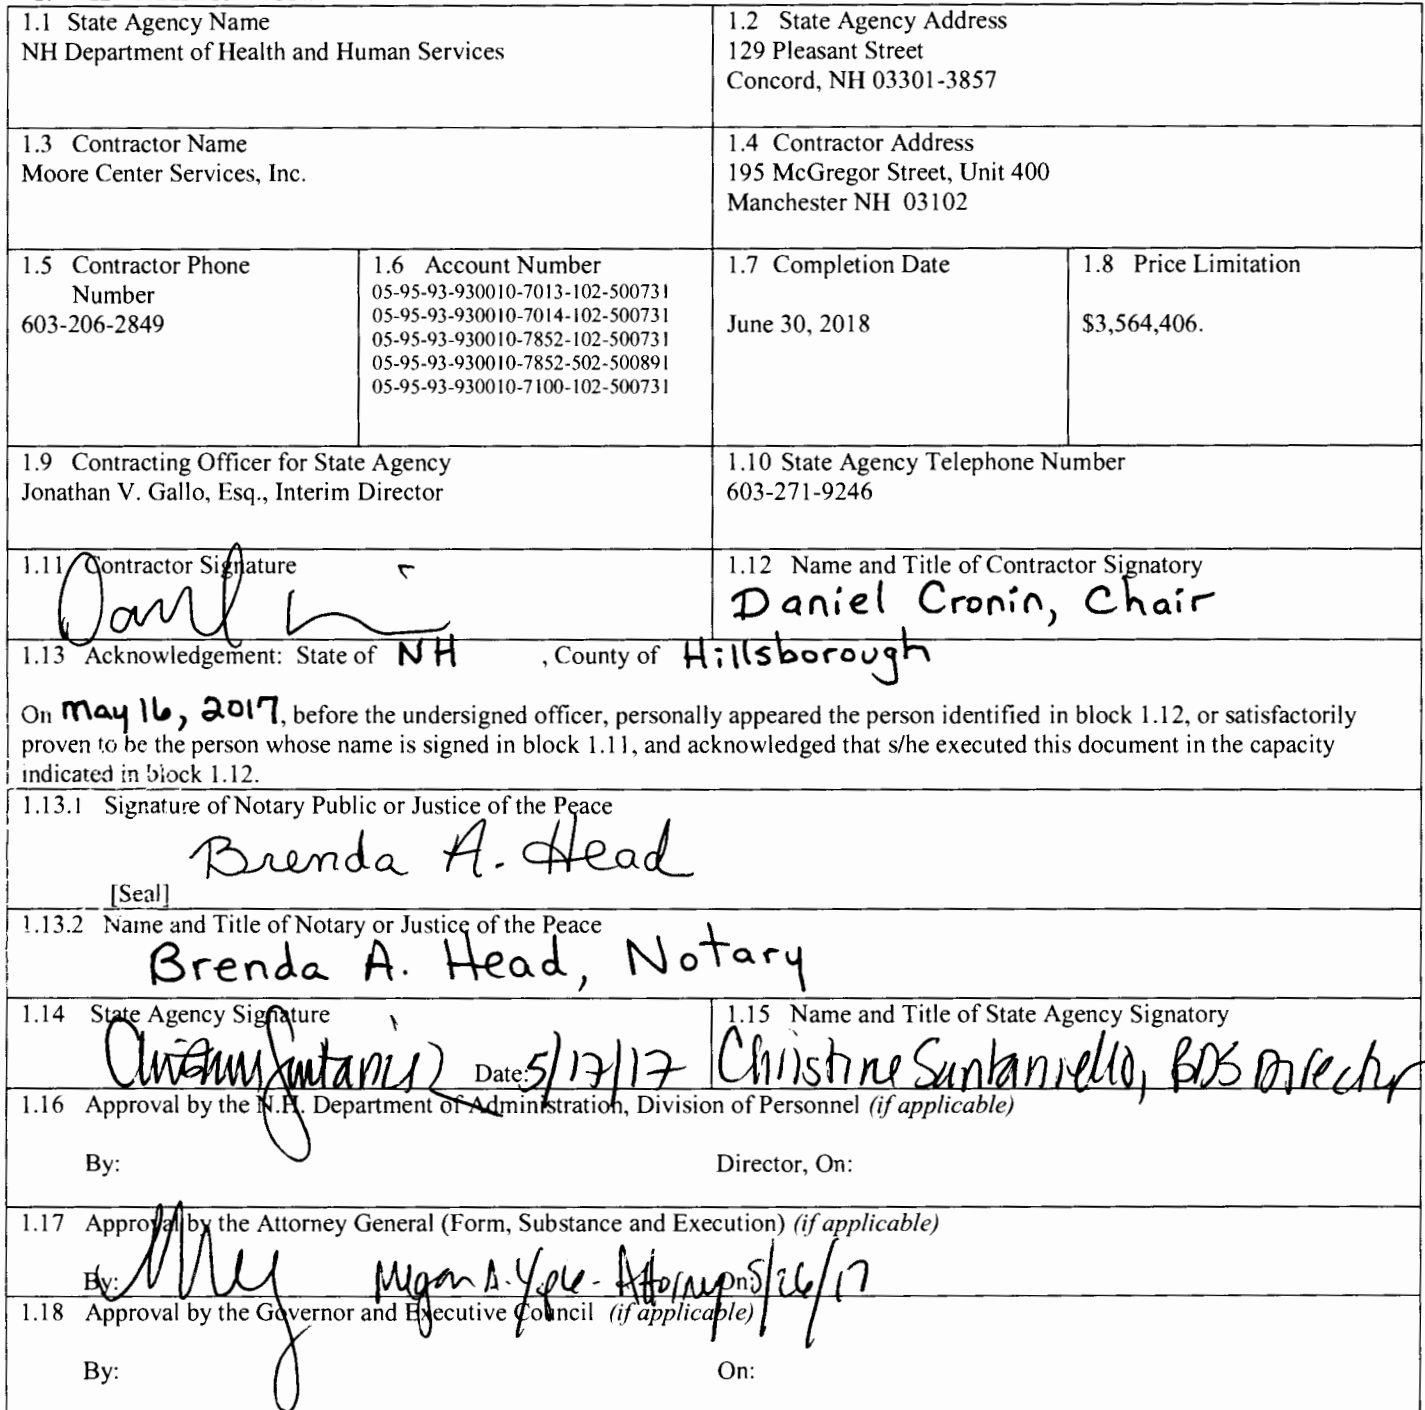 1.1 State Agency Name
NH Department of Health and Human Services
1.2 State Agency Address
129 Pleasant Street
Concord, NH 03301-3857
1.3 Contractor Name
Moore Center Services, Inc.
1.4 Contractor Address
195 McGregor Street, Unit 400
Manchester NH 03102
1.5 Contractor Phone
Number
603-206-2849
1.6 Account Number
05-95-93-930010-7013-102-500731
05-95-93-930010-7014-102-500731
05-95-93-930010-7852-102-500731
05-95-93-930010-7852-502-500891
05-95-93-930010-7100-102-500731
1.7 Completion Date
June 30, 2018
1.8 Price Limitation
$3,564,406.
1.9 Contracting Officer for State Agency
Jonathan V. Gallo, Esq., Interim Director
1.10 State Agency Telephone Number
603-271-9246
1.11 Contractor Signature
1.12 Name and Title of Contractor Signatory
Daniel Cronin, Chair
1.13 Acknowledgement: State of NH , County of Hillsborough
On May 16, 2017, before the undersigned officer, personally appeared the person identified in block 1.12, or satisfactorily
proven to be the person whose name is signed in block 1.11, and acknowledged that s/he executed this document in the capacity
indicated in block 1.12.
1.13.1 Signature of Notary Public or Justice of the Peace
Brenda A. Head
[Seal]
1.13.2 Name and Title of Notary or Justice of the Peace
Brenda A. Head, Notary
1.14 State Agency Signature
Date: 5/17/17
1.15 Name and Title of State Agency Signatory
Christine Santaniello, BDS Director
1.16 Approval by the N.H. Department of Administration, Division of Personnel (if applicable)
By: Director, On:
1.17 Approval by the Attorney General (Form, Substance and Execution) (if applicable)
By: Megan A. - Attorney On: 5/26/17
1.18 Approval by the Governor and Executive Council (if applicable)
By: On: